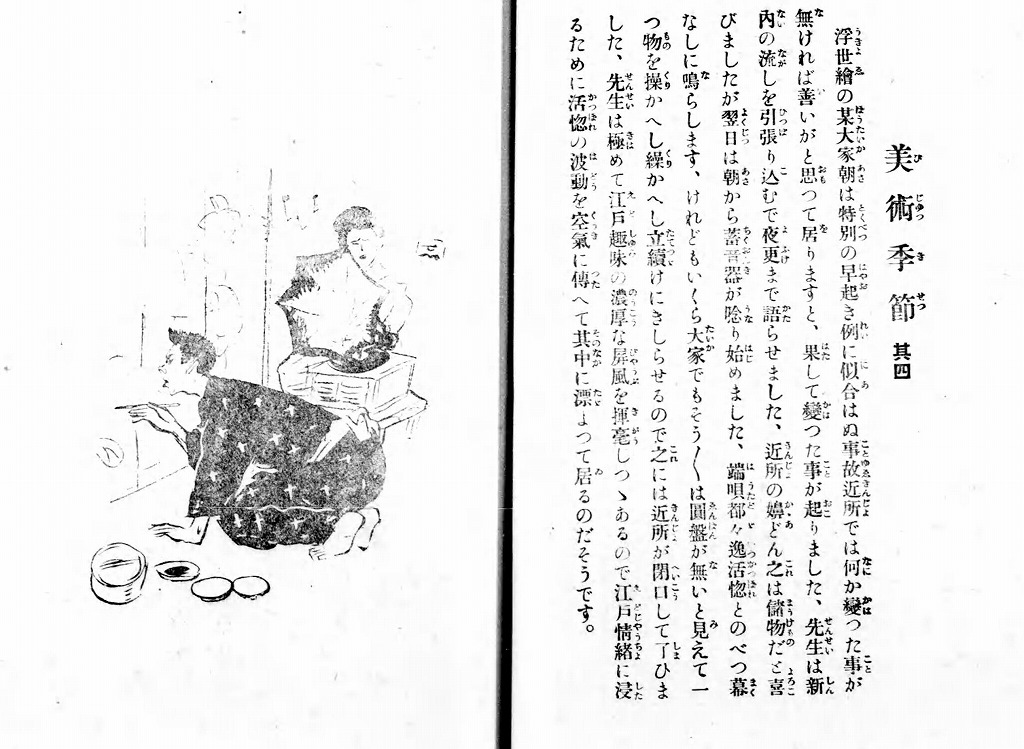 美術季節 其四
浮世繪の某大家朝は特別の早起き例に似合はぬ事故近所では何か變つた事が
無ければ善いがと思つて居りますと、果して變つた事が起りました、先生は新
內の流しを引張り込むで夜更まで語らせました、近所の嬶どん之は儲物だと喜
びましたが翌日は朝から蓄音器が唸り始めました、端唄都々逸活惚とのべつ幕
なしに鳴らします、けれどもいくら大家でもそう〳〵は圓盤が無いと見えて一
つ物を操かへし繰かへし立續けにきしらせるので之には近所が閉口して了ひま
した、先生は極めて江戸趣味の濃厚な屏風を揮毫しつゝあるので江戸情緒に浸
るために活惚の波動を空氣に傳へて其中に漂よつて居るのだそうです。